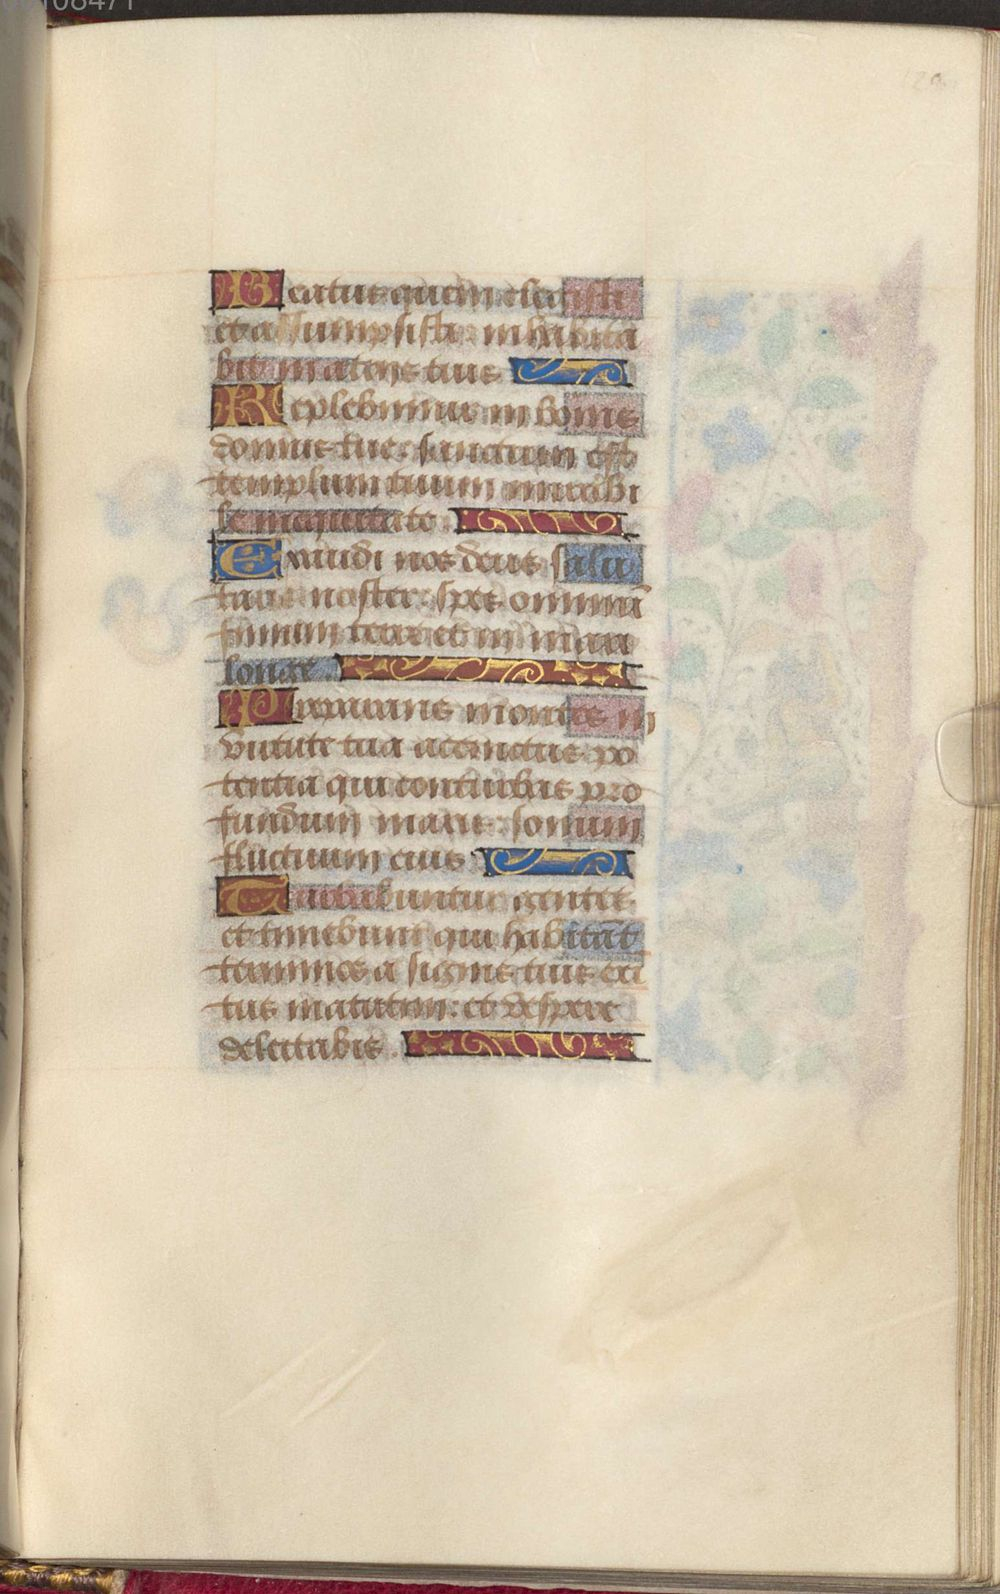 00108471
129
Beatus quem elegisti
et assumpsisti: inhabita
bit in atriis tuis
Replebimur in bonis
domus tue: sanctum est
templum tuum mirabi
le in equitate.
Exaudi nos deus salu
taris noster: spes omniū
finium terre et in mari
longe.
Preparans montes in
virtute tua accinctus po
tentia qui conturbas pro
fundum maris: sonum
fluctuum eius
Turbabuntur gentes
et timebunt qui habitāt
terminos a signis tuis exi
tus matutini: et vespere
delectabis.